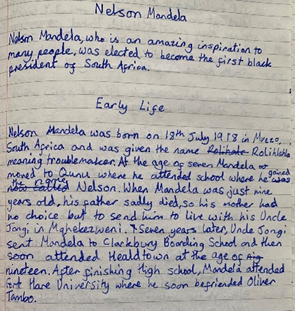 Nelson Mandela
Nelson Mandela, who is an amazing inspiration to
many people, was elected to become the first black
president of South Africa.
Early Life
Nelson Mandela was born on 18th July 1918 in Mvezo,
South Africa and was given the name Rolihlahla
meaning troublemaker. At the age of seven Mandela
moved to Qunu where he attended school where he gained
the name Nelson. When Mandela was just nine
years old, his father sadly died, so his mother had
no choice but to send him to live with his Uncle
Jongi, in Mqhekezweni. Seven years later, Uncle Jongi
sent Mandela to Clarkbury Boarding School and then
soon attended Healdtown at the age of
nineteen. After finishing high school, Mandela attended
Fort Hare University where he soon befriended Oliver
Tambo.